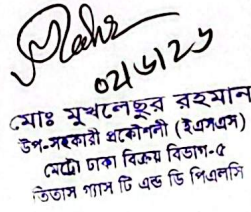 ০২/৬/২১
মোঃ মুখলেছুর রহমান
উপ-সহকারী প্রকৌশলী (ইএসএস)
মেট্রো ঢাকা বিক্রয় বিভাগ-৫
তিতাস গ্যাস টি এন্ড ডি পিএলসি